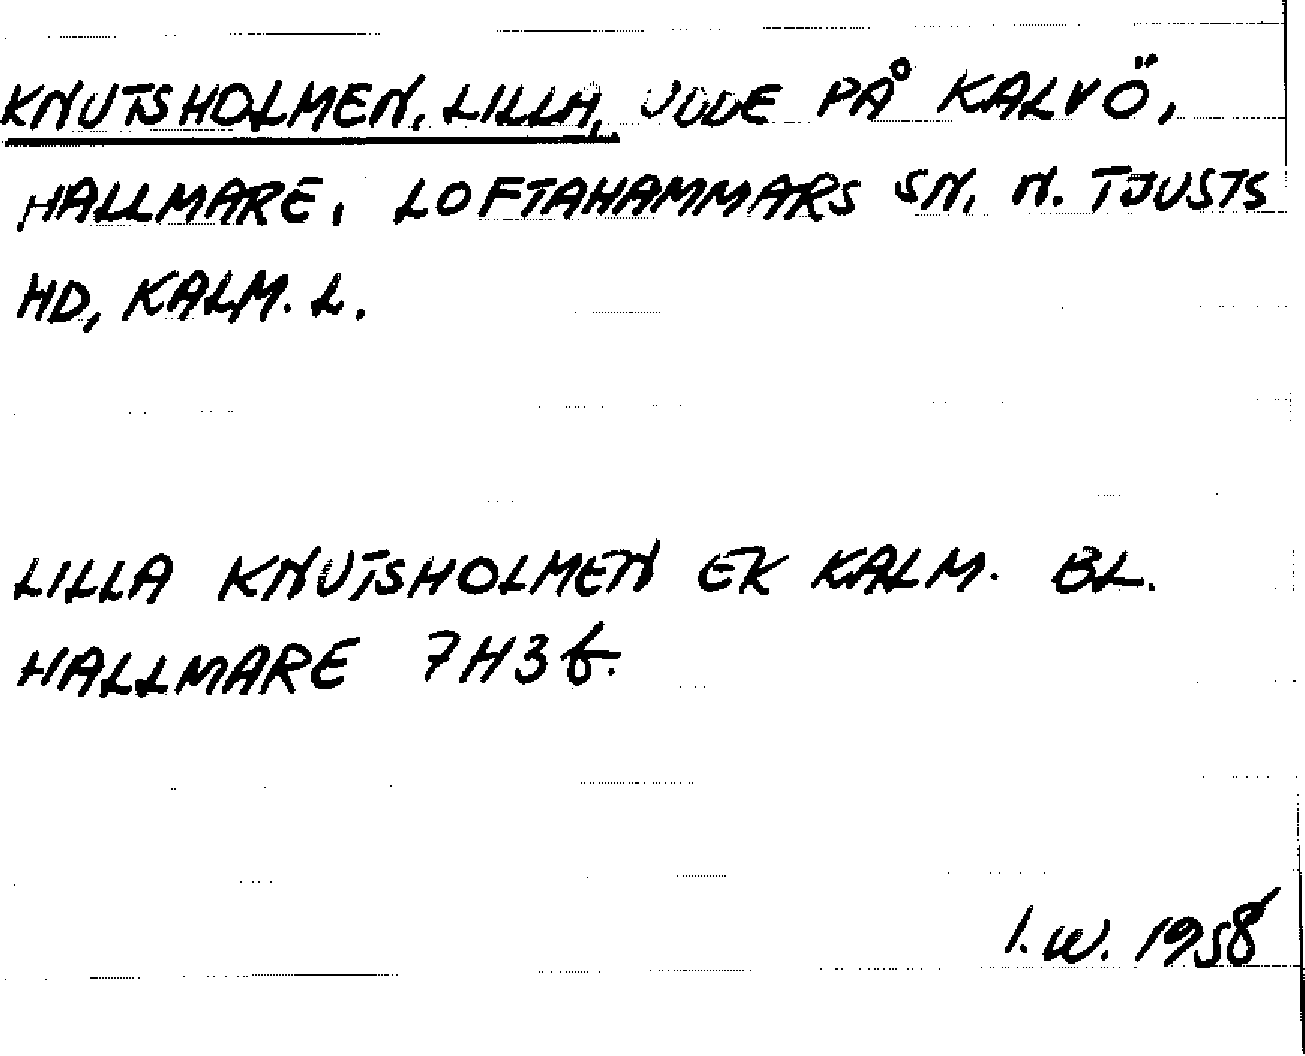 KNUTSHOLMEN, LILLA, UDDE PÅ KALVÖ,
HALLMARE, LOFTAHAMMARS SN, N. TJUSTS
HD, KALM. L.
LILLA KNUTSHOLMEN EK KALM. BL.
HALLMARE 7H3f.
I.W. 1958